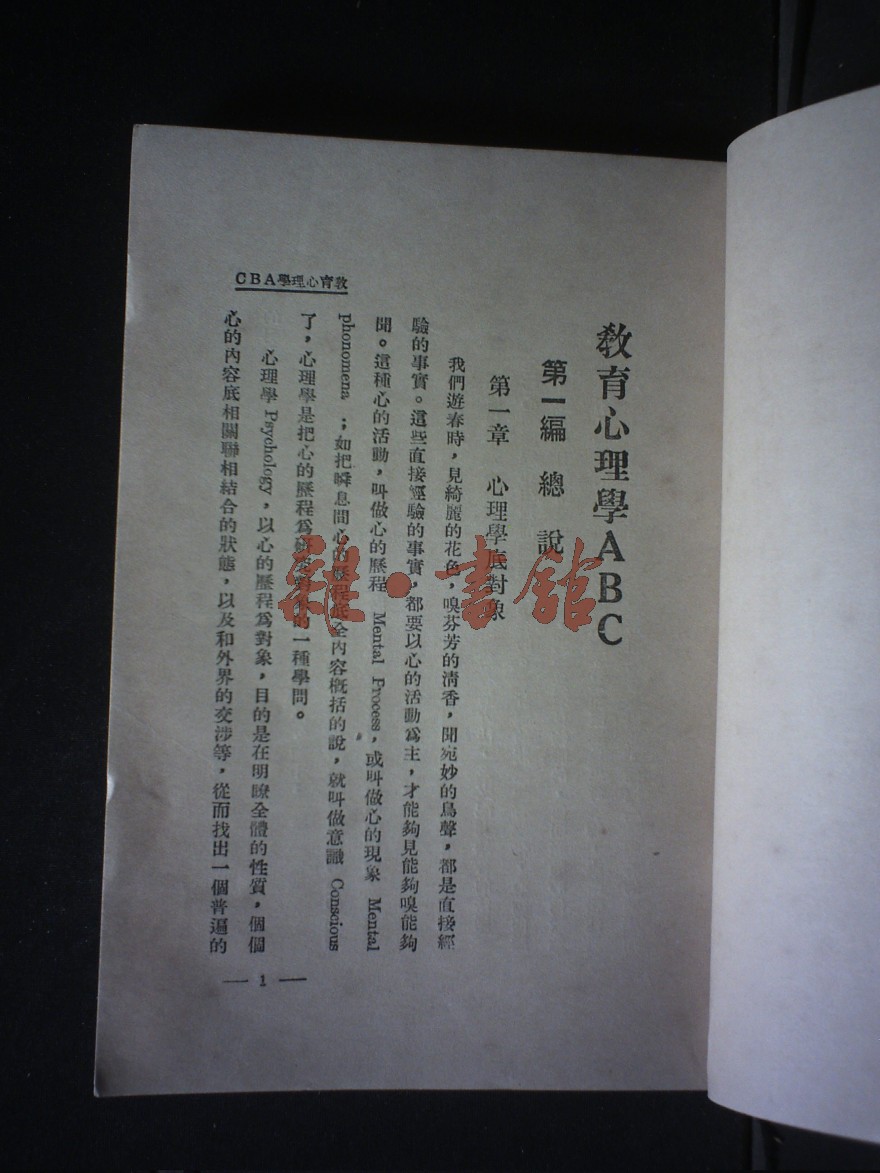 教育心理學ABC
第一編 總說
第一章 心理學底對象
我們遊春時，見綺麗的花色，嗅芬芳的清香，聞宛妙的鳥聲，都是直接經
驗的事實。這些直接經驗的事實，都要以心的活動爲主，才能夠見能夠嗅能夠
聞。這種心的活動，叫做心的歷程 Mental Process，或叫做心的現象 Mental
Phonomena ；如把瞬息間心的歷程底全內容概括的說，就叫做意識 Conscious
了，心理學是把心的歷程爲研究對象的一種學問。
心理學 Psychology，以心的歷程爲對象，目的是在明瞭全體的性質，個個
心的內容底相關聯相結合的狀態，以及和外界的交涉等，從而找出一個普遍的
CBA學理心育教
— 1 —
雜·書館